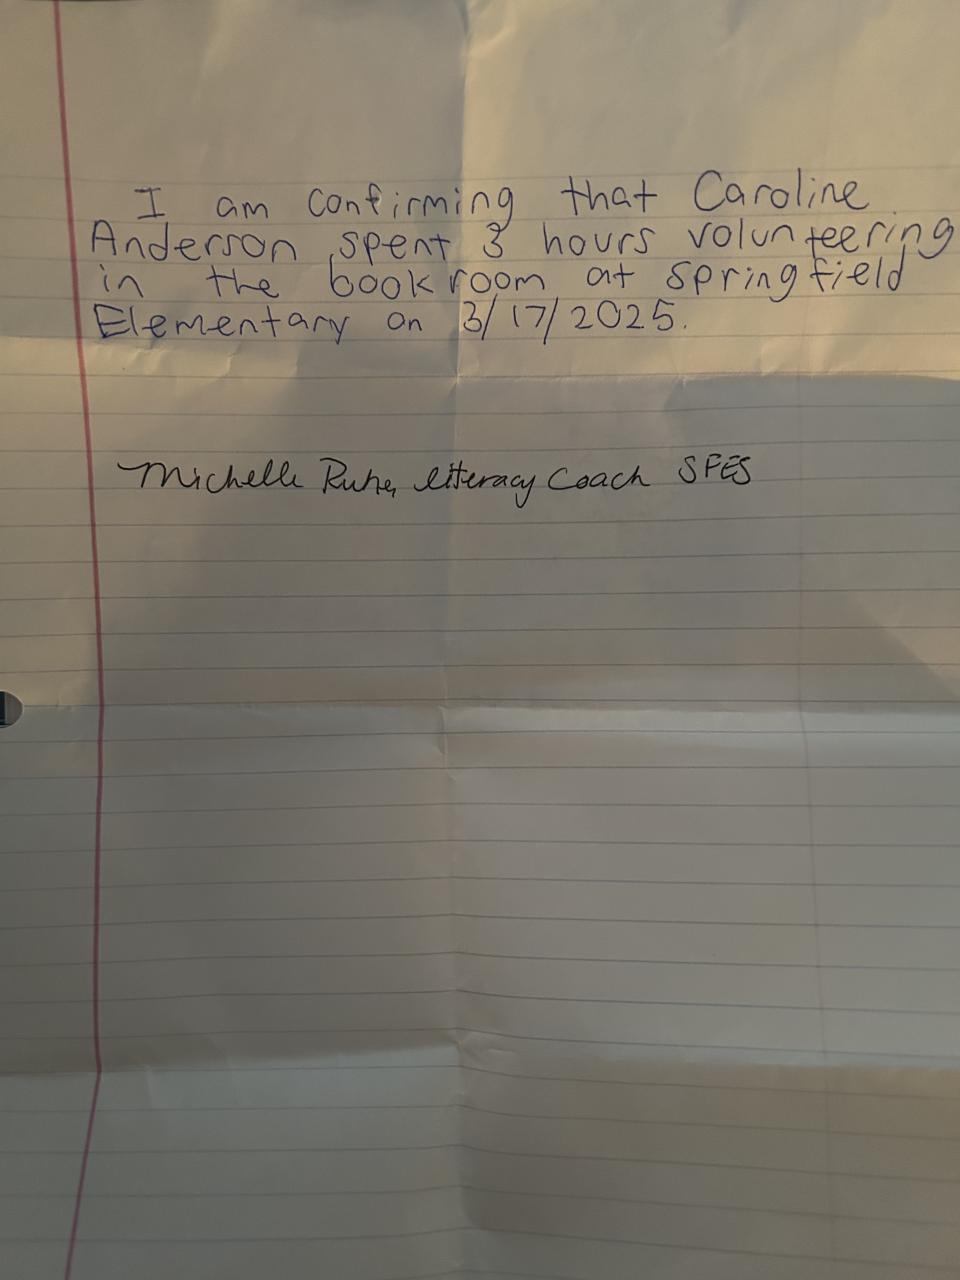 I am confirming that Caroline
Anderson spent 3 hours volunteering
in the book room at springfield
Elementary on 3/17/2025.
Michelle literacy Coach SFES